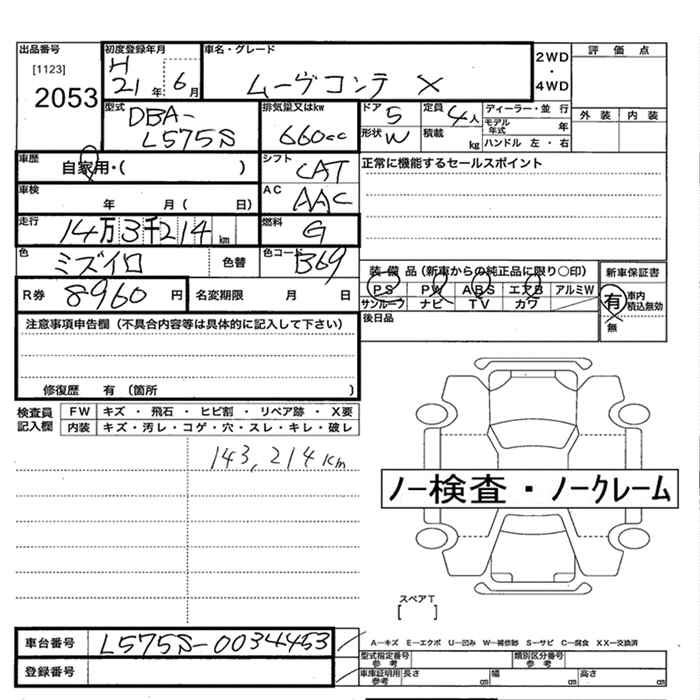 出品番号 初度登録年月 車名・グレード 評価点
[1123] H 2WD
2053 21年 6月 ムーヴコンテ X ・
4WD
型式 DBA-L575S 排気量又はkw 660cc ドア 5 定員 4人 ディーラー・並行 外装 内装
形状 W 積載 kg モデル年式 年
ハンドル 左・右
車歴 自家用・( ) シフト CAT 正常に機能するセールスポイント
車検 年 月( 日) AC AAC
走行 14万3千214km 燃料 G
色 ミズイロ 色替 色コード B69 装備品(新車からの純正品に限り○印) 新車保証書
R券 8960円 名変期限 月 日 PS PW ABS エアB アルミW 有 車内積込無効
サンルーフ ナビ TV カワ 無
注意事項申告欄(不具合内容等は具体的に記入して下さい) 後日品
修復歴 有(箇所 )
検査員記入欄 FW キズ・飛石・ヒビ割・リペア跡・X要
内装 キズ・汚レ・コゲ・穴・スレ・キレ・破レ
143,214km
ノー検査・ノークレーム
スペアT
[ ]
車台番号 L575S-0034453 A―キズ E―エクボ U―凹み W―補修跡 S―サビ C―腐食 XX―交換済
型式指定番号 参考 類別区分番号 参考
登録番号 車庫証明用参考 長さ cm 幅 cm 高さ cm